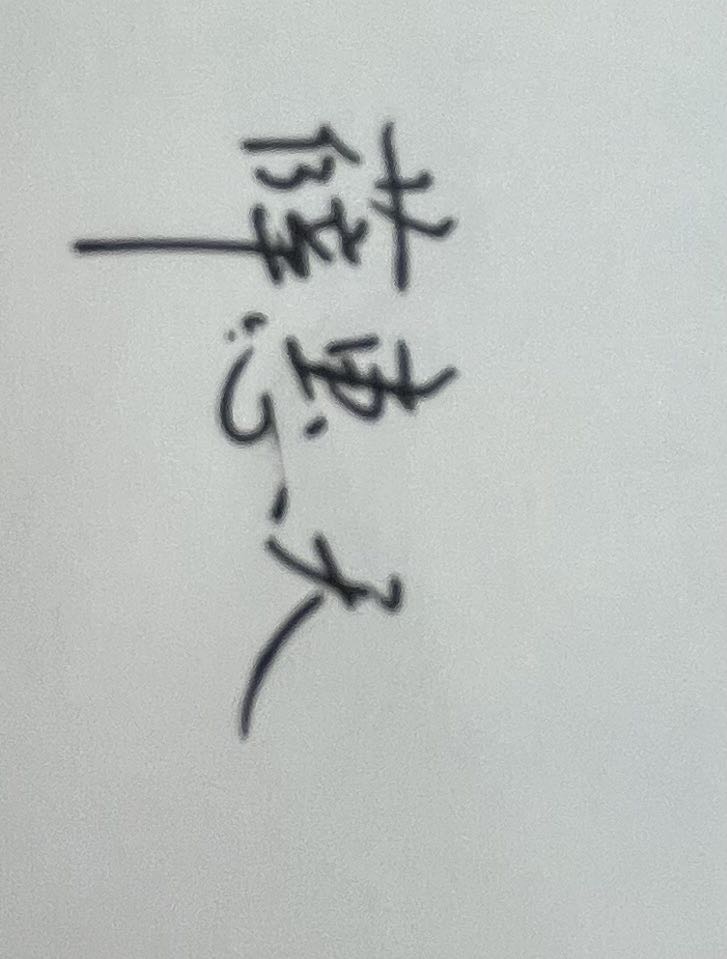 薛惠天